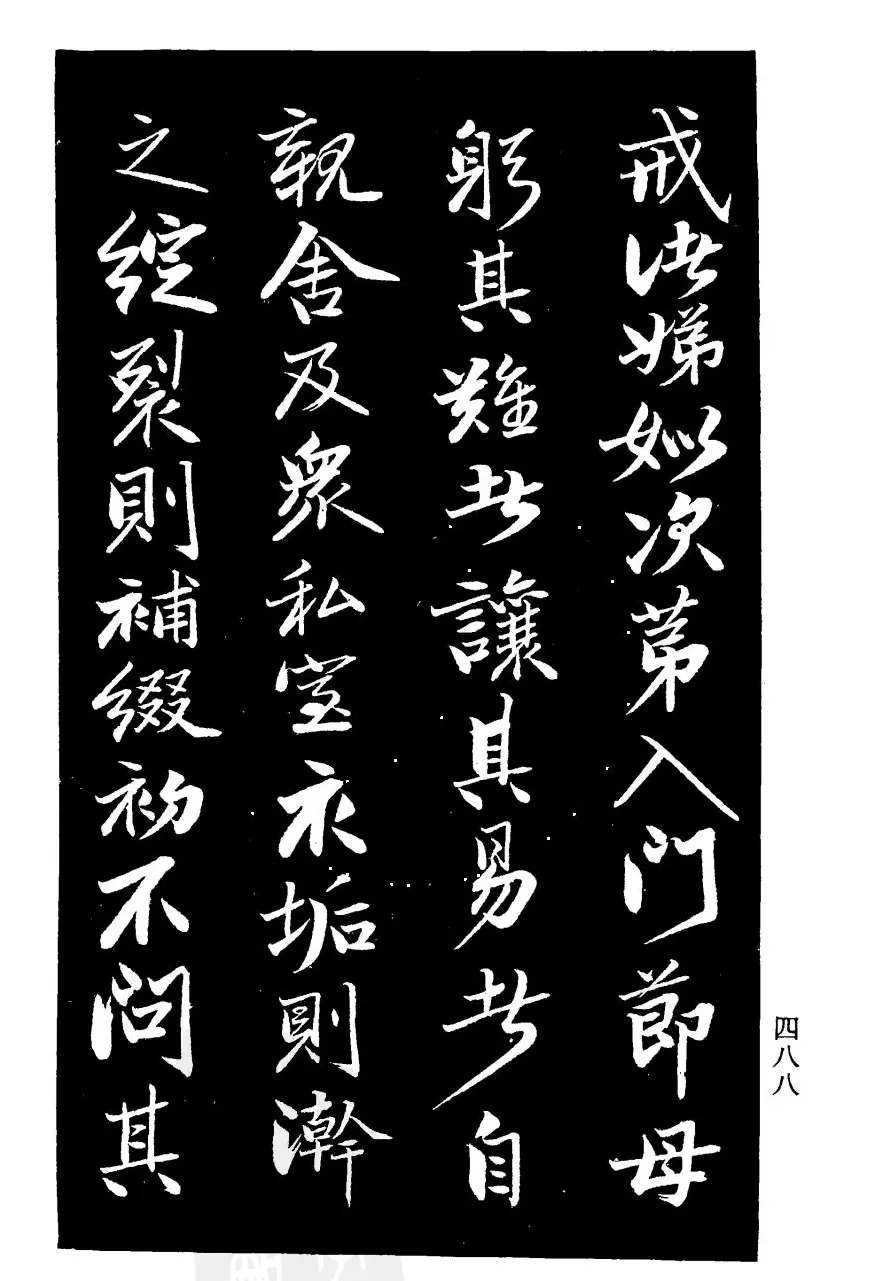 戒諸娣姒次第入門節母
躬其難者讓其易者自
親舍及衆私室衣垢則澣
之綻裂則補綴初不問其
四八八